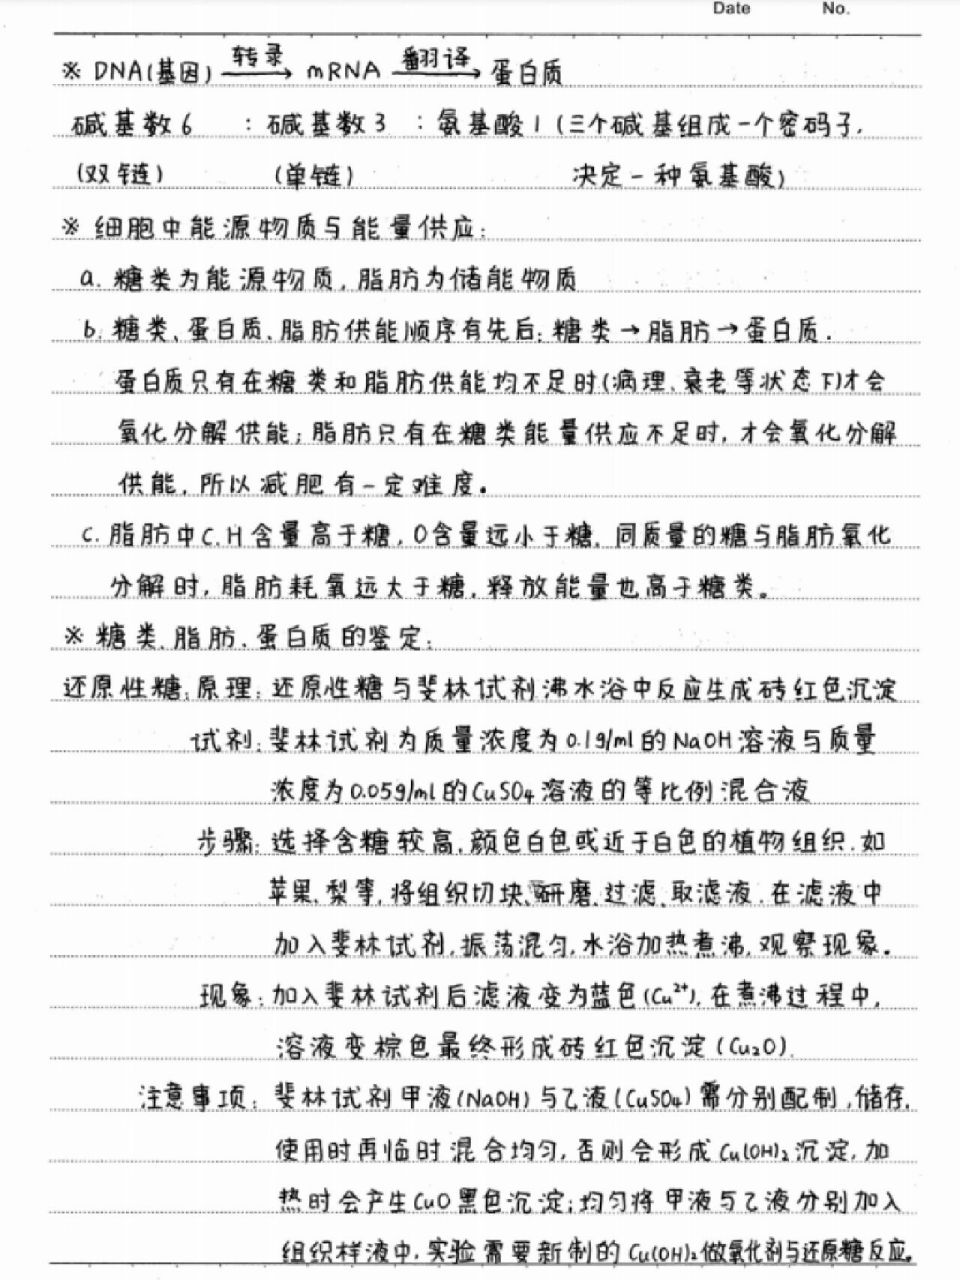 Date No.
※ DNA(基因) 转录→ mRNA 翻译→ 蛋白质
碱基数6 : 碱基数3 : 氨基酸1 (三个碱基组成一个密码子,
(双链) (单链) 决定一种氨基酸)
※ 细胞中能源物质与能量供应:
a. 糖类为能源物质,脂肪为储能物质
b. 糖类、蛋白质、脂肪供能顺序有先后: 糖类→脂肪→蛋白质.
蛋白质只有在糖类和脂肪供能均不足时(病理、衰老等状态下)才会
氧化分解供能;脂肪只有在糖类能量供应不足时,才会氧化分解
供能,所以减肥有一定难度。
c. 脂肪中C.H含量高于糖,O含量远小于糖.同质量的糖与脂肪氧化
分解时,脂肪耗氧远大于糖,释放能量也高于糖类。
※ 糖类.脂肪.蛋白质的鉴定:
还原性糖:原理:还原性糖与斐林试剂沸水浴中反应生成砖红色沉淀
试剂:斐林试剂为质量浓度为0.1g/ml的NaOH溶液与质量
浓度为0.05g/ml的CuSO₄溶液的等比例混合液
步骤:选择含糖较高.颜色白色或近于白色的植物组织.如
苹果.梨等,将组织切块、研磨.过滤.取滤液.在滤液中
加入斐林试剂,振荡混匀,水浴加热煮沸,观察现象.
现象:加入斐林试剂后滤液变为蓝色(Cu²⁺),在煮沸过程中,
溶液变棕色最终形成砖红色沉淀(Cu₂O).
注意事项:斐林试剂甲液(NaOH)与乙液(CuSO₄)需分别配制,储存,
使用时再临时混合均匀,否则会形成Cu(OH)₂沉淀,加
热时会产生CuO黑色沉淀;均匀将甲液与乙液分别加入
组织样液中.实验需要新制的Cu(OH)₂做氧化剂与还原糖反应。